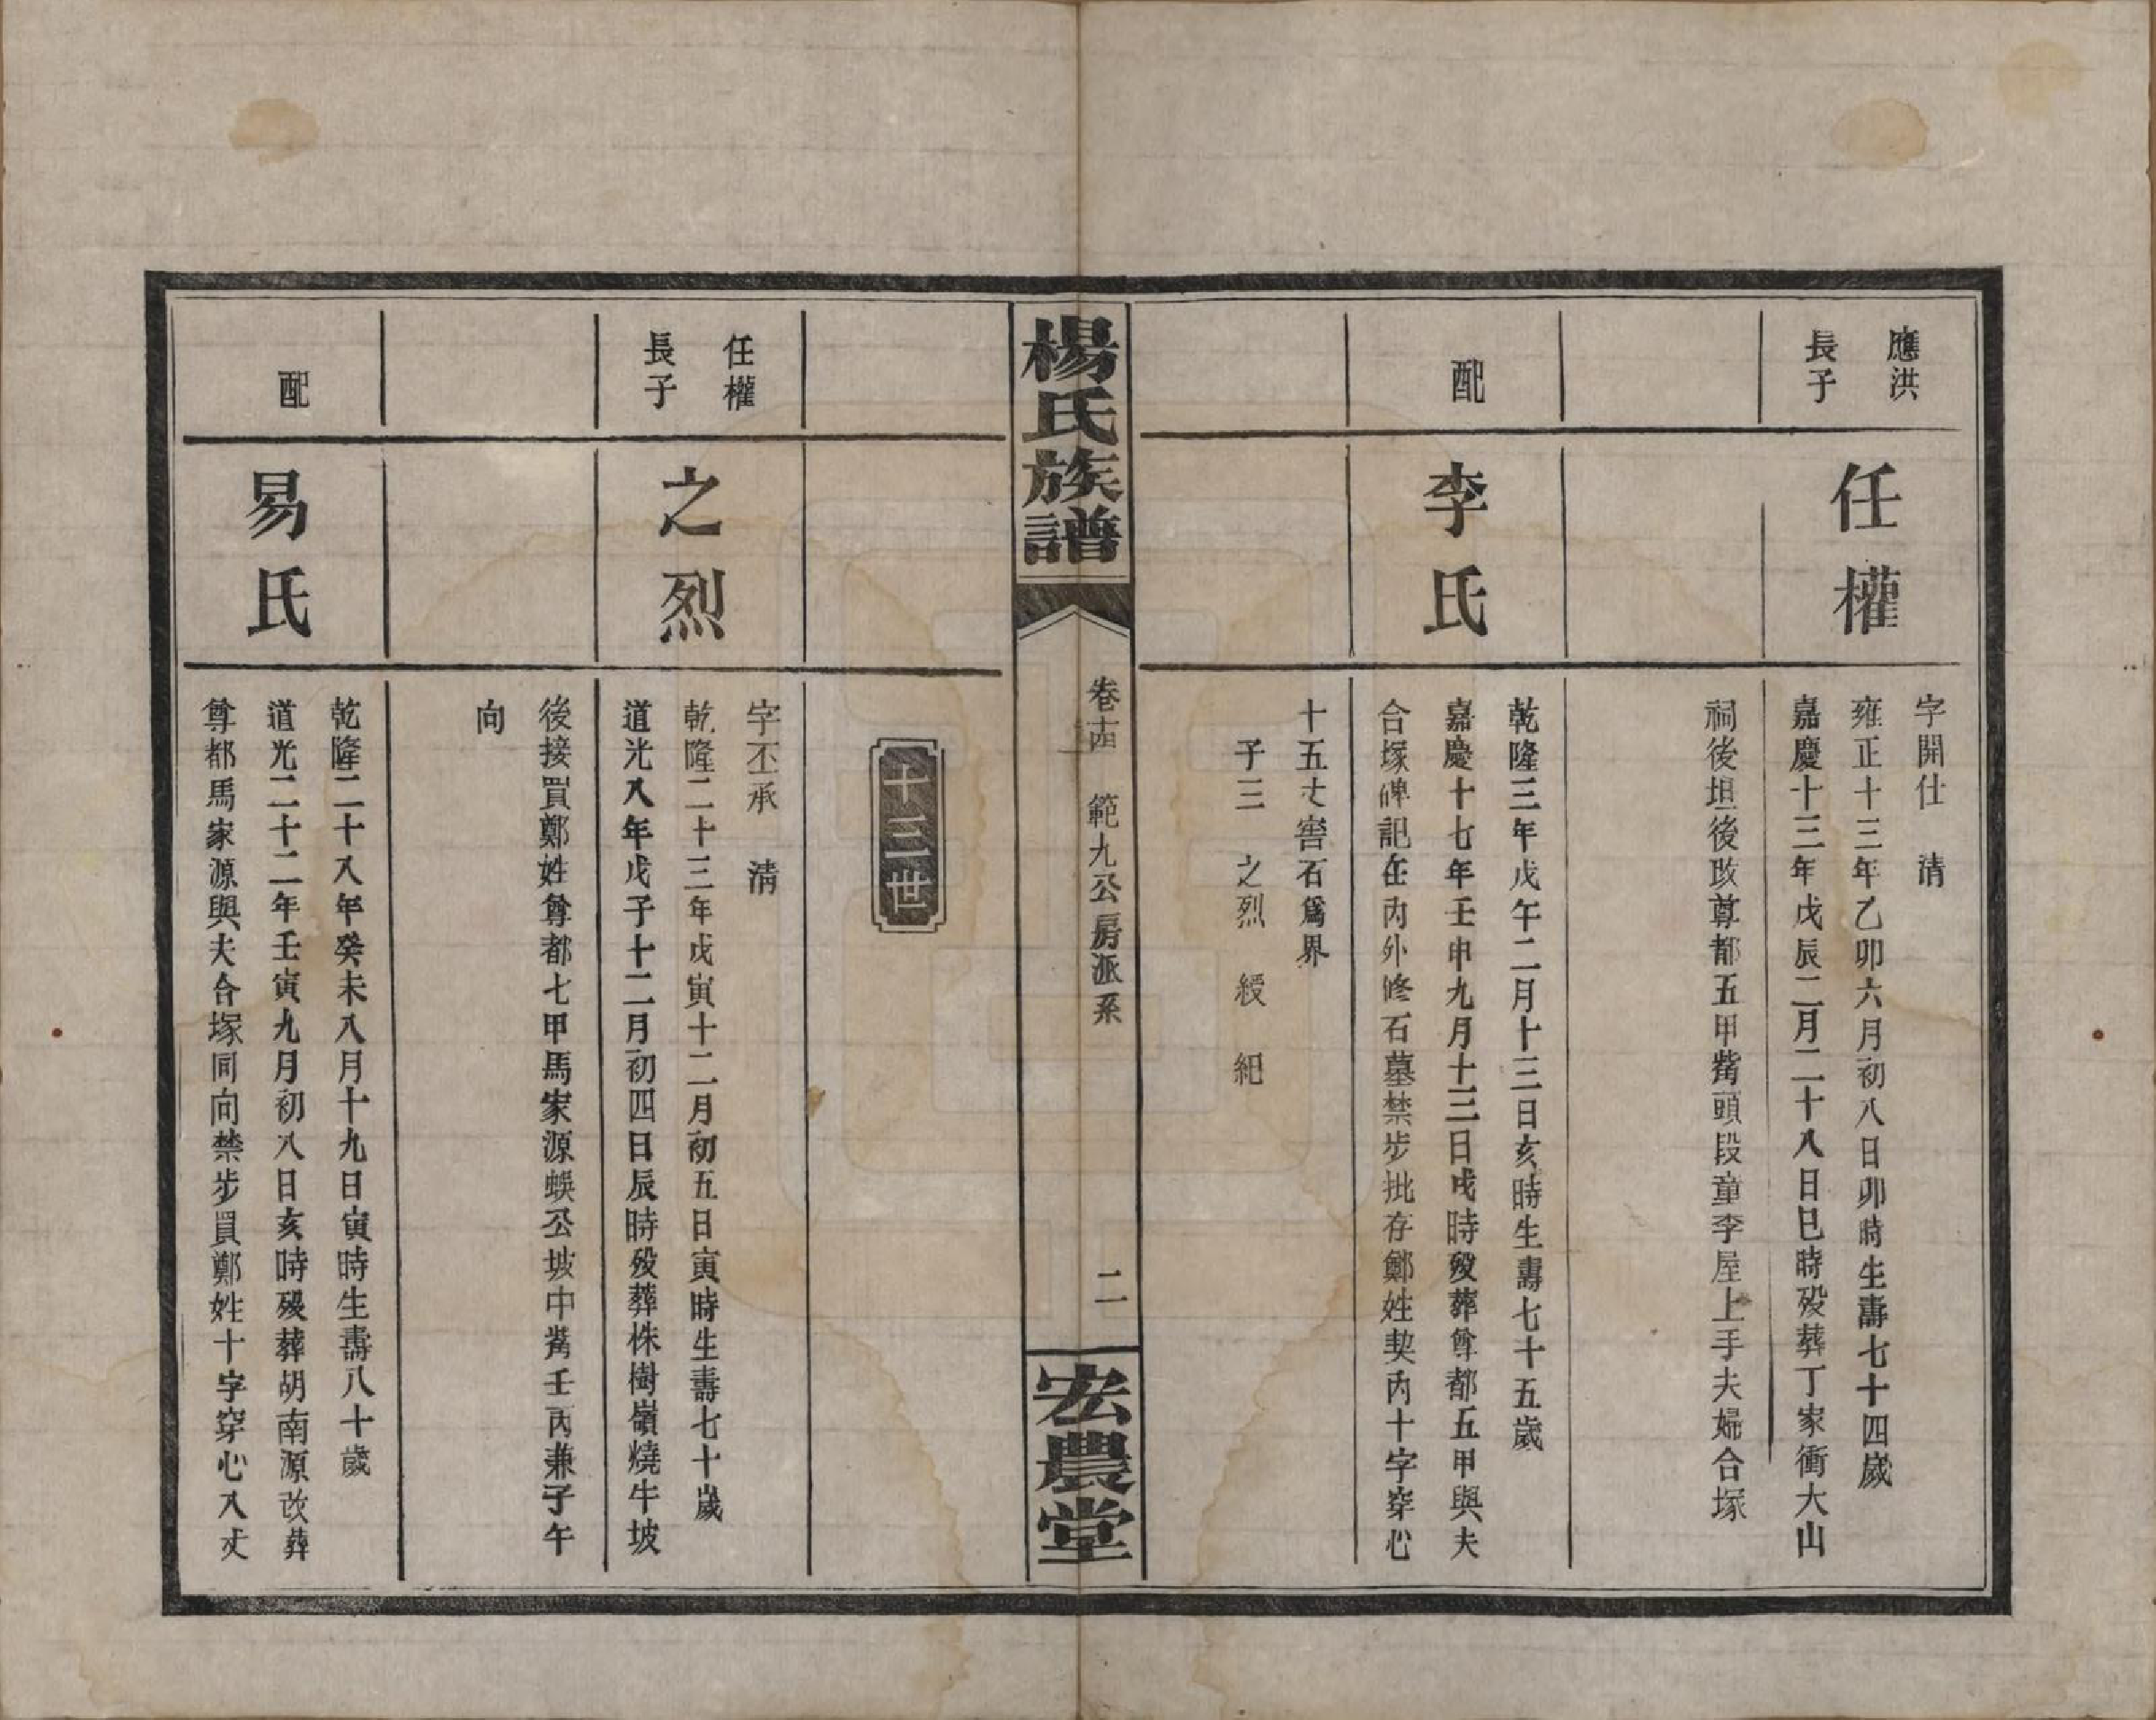 應洪
長子
任權
字開仕　清
雍正十三年乙卯六月初八日卯時生壽七十四歲
嘉慶十三年戊辰二月二十八日巳時歿葬丁家衝大山
祠後坦後改尊都五甲觜頭段童李屋上手夫婦合塚
配
李氏
乾隆三年戊午二月十三日亥時生壽七十五歲
嘉慶十七年壬申九月十三日戌時歿葬尊都五甲與夫
合塚碑記在內外修石墓禁步批存鄭姓契內十字穿心
十五丈窖石爲界
子三　之烈　綬　紀
楊氏族譜
卷十四　範九公房派系
二
宏農堂
十三世
任權
長子
之烈
字丕承　清
乾隆二十三年戊寅十二月初五日寅時生壽七十歲
道光八年戊子十二月初四日辰時歿葬株樹嶺燒牛坡
後接買鄭姓尊都七甲馬家源蜈公坡中觜壬丙兼子午
向
配
易氏
乾隆二十八年癸未八月十九日寅時生壽八十歲
道光二十二年壬寅九月初八日亥時歿葬胡南源改葬
尊都馬家源與夫合塚同向禁步買鄭姓十字穿心八丈